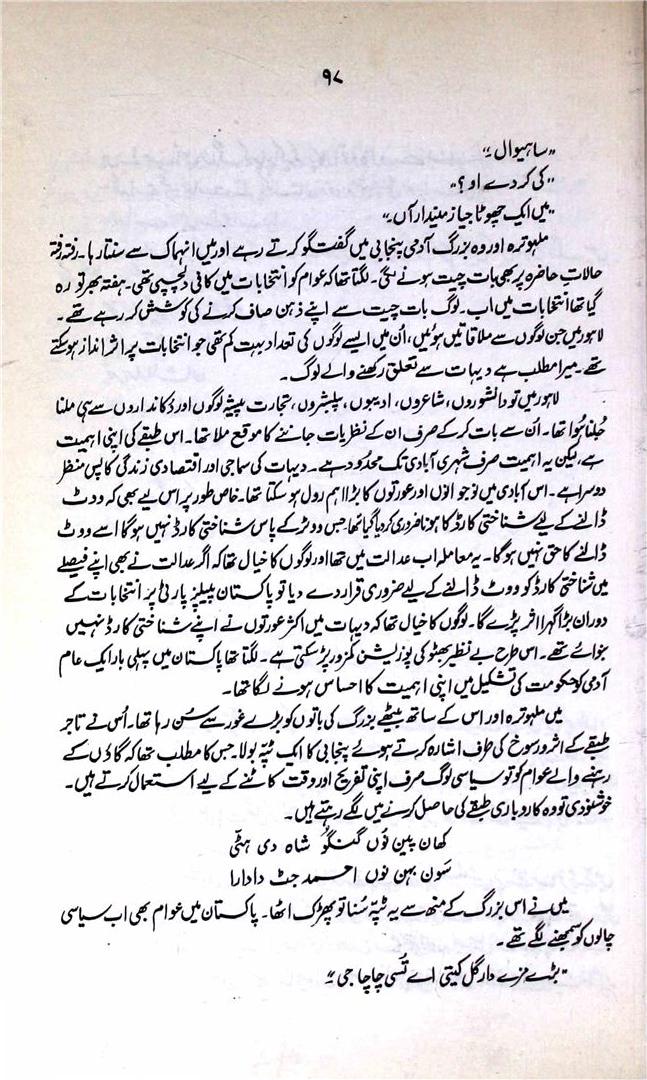 ۹۷
"ساہیوال۔"
"کی کردے او؟"
"میں ایک چھوٹا جیا زمیندار آں۔"
ملہوترہ اور وہ بزرگ آدمی پنجابی میں گفتگو کرتے رہے اور میں انہماک سے سنتا رہا۔ رفتہ رفتہ
حالات حاضرہ پر بھی بات چیت ہونے لگی۔ لگتا تھا کہ عوام کو انتخابات میں کافی دلچسپی تھی۔ ہفتہ بھر تو رہ
گیا تھا انتخابات میں اب۔ لوگ بات چیت سے اپنے ذہن صاف کرنے کی کوشش کر رہے تھے۔
لاہور میں جن لوگوں سے ملاقاتیں ہوئیں، اُن میں ایسے لوگوں کی تعداد بہت کم تھی جو انتخابات پر اثر انداز ہو سکتے
تھے۔ میرا مطلب ہے دیہات سے تعلق رکھنے والے لوگ۔
لاہور میں تو دانشوروں، شاعروں، ادیبوں، پبلشروں، تجارت پیشہ لوگوں اور دُکانداروں سے ہی ملنا
جُلنا ہوا تھا۔ اُن سے بات کر کے صرف ان کے نظریات جاننے کا موقع ملا تھا۔ اس طبقے کی اپنی اہمیت
ہے، لیکن یہ اہمیت صرف شہری آبادی تک محدود ہے۔ دیہات کی سماجی اور اقتصادی زندگی کا پس منظر
دوسرا ہے۔ اس آبادی میں نوجوانوں اور عورتوں کا بڑا اہم رول ہو سکتا تھا۔ خاص طور پر اس لیے بھی کہ ووٹ
ڈالنے کے لیے شناختی کارڈ کا ہونا ضروری کر دیا گیا تھا۔ جس ووٹر کے پاس شناختی کارڈ نہیں ہوگا اسے ووٹ
ڈالنے کا حق نہیں ہوگا۔ یہ معاملہ اب عدالت میں تھا اور لوگوں کا خیال تھا کہ اگر عدالت نے بھی اپنے فیصلے
میں شناختی کارڈ کو ووٹ ڈالنے کے لیے ضروری قرار دے دیا تو پاکستان پیپلز پارٹی پر انتخابات کے
دوران بڑا گہرا اثر پڑے گا۔ لوگوں کا خیال تھا کہ دیہات میں اکثر عورتوں نے اپنے شناختی کارڈ نہیں
بنوائے تھے۔ اس طرح بے نظیر بھٹو کی پوزیشن کمزور پڑ سکتی ہے۔ لگتا تھا پاکستان میں پہلی بار ایک عام
آدمی کو حکومت کی تشکیل میں اپنی اہمیت کا احساس ہونے لگا تھا۔
میں ملہوترہ اور اس کے ساتھ بیٹھے بزرگ کی باتوں کو بڑے غور سے سُن رہا تھا۔ اُس نے تاجر
طبقے کے اثر و رسوخ کی طرف اشارہ کرتے ہوئے پنجابی کا ایک ٹپّہ بولا۔ جس کا مطلب تھا کہ گاؤں کے
رہنے والے عوام کو تو سیاسی لوگ صرف اپنی تفریح اور وقت کاٹنے کے لیے استعمال کرتے ہیں۔
خوشنودی تو وہ کاروباری طبقے کی حاصل کرنے میں لگے رہتے ہیں۔
کھان پین نوں گنگو شاہ دی ہٹّی
سَون بہن نوں احمد جٹ دا دارا
میں نے اس بزرگ کے منھ سے یہ ٹپّہ سُنا تو پھڑک اٹھا۔ پاکستان میں عوام بھی اب سیاسی
چالوں کو سمجھنے لگے تھے۔
"بڑے مزے دار گل کیتی اے تُسی چاچا جی۔"